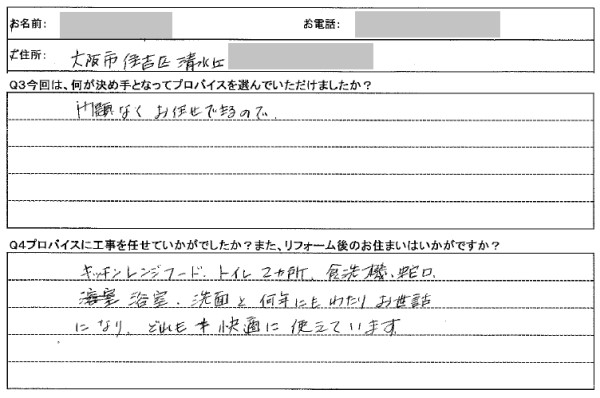 お名前:
お電話:
ご住所: 大阪市住吉区清水丘
Q3今回は、何が決め手となってプロバイスを選んでいただけましたか?
問題なくお任せできるので、
Q4プロバイスに工事を任せていかがでしたか?また、リフォーム後のお住まいはいかがですか?
キッチンレンジフード、トイレ2カ所、食洗機、蛇口、
浴室、洗面と何年にもわたりお世話
になり、どれも快適に使えています